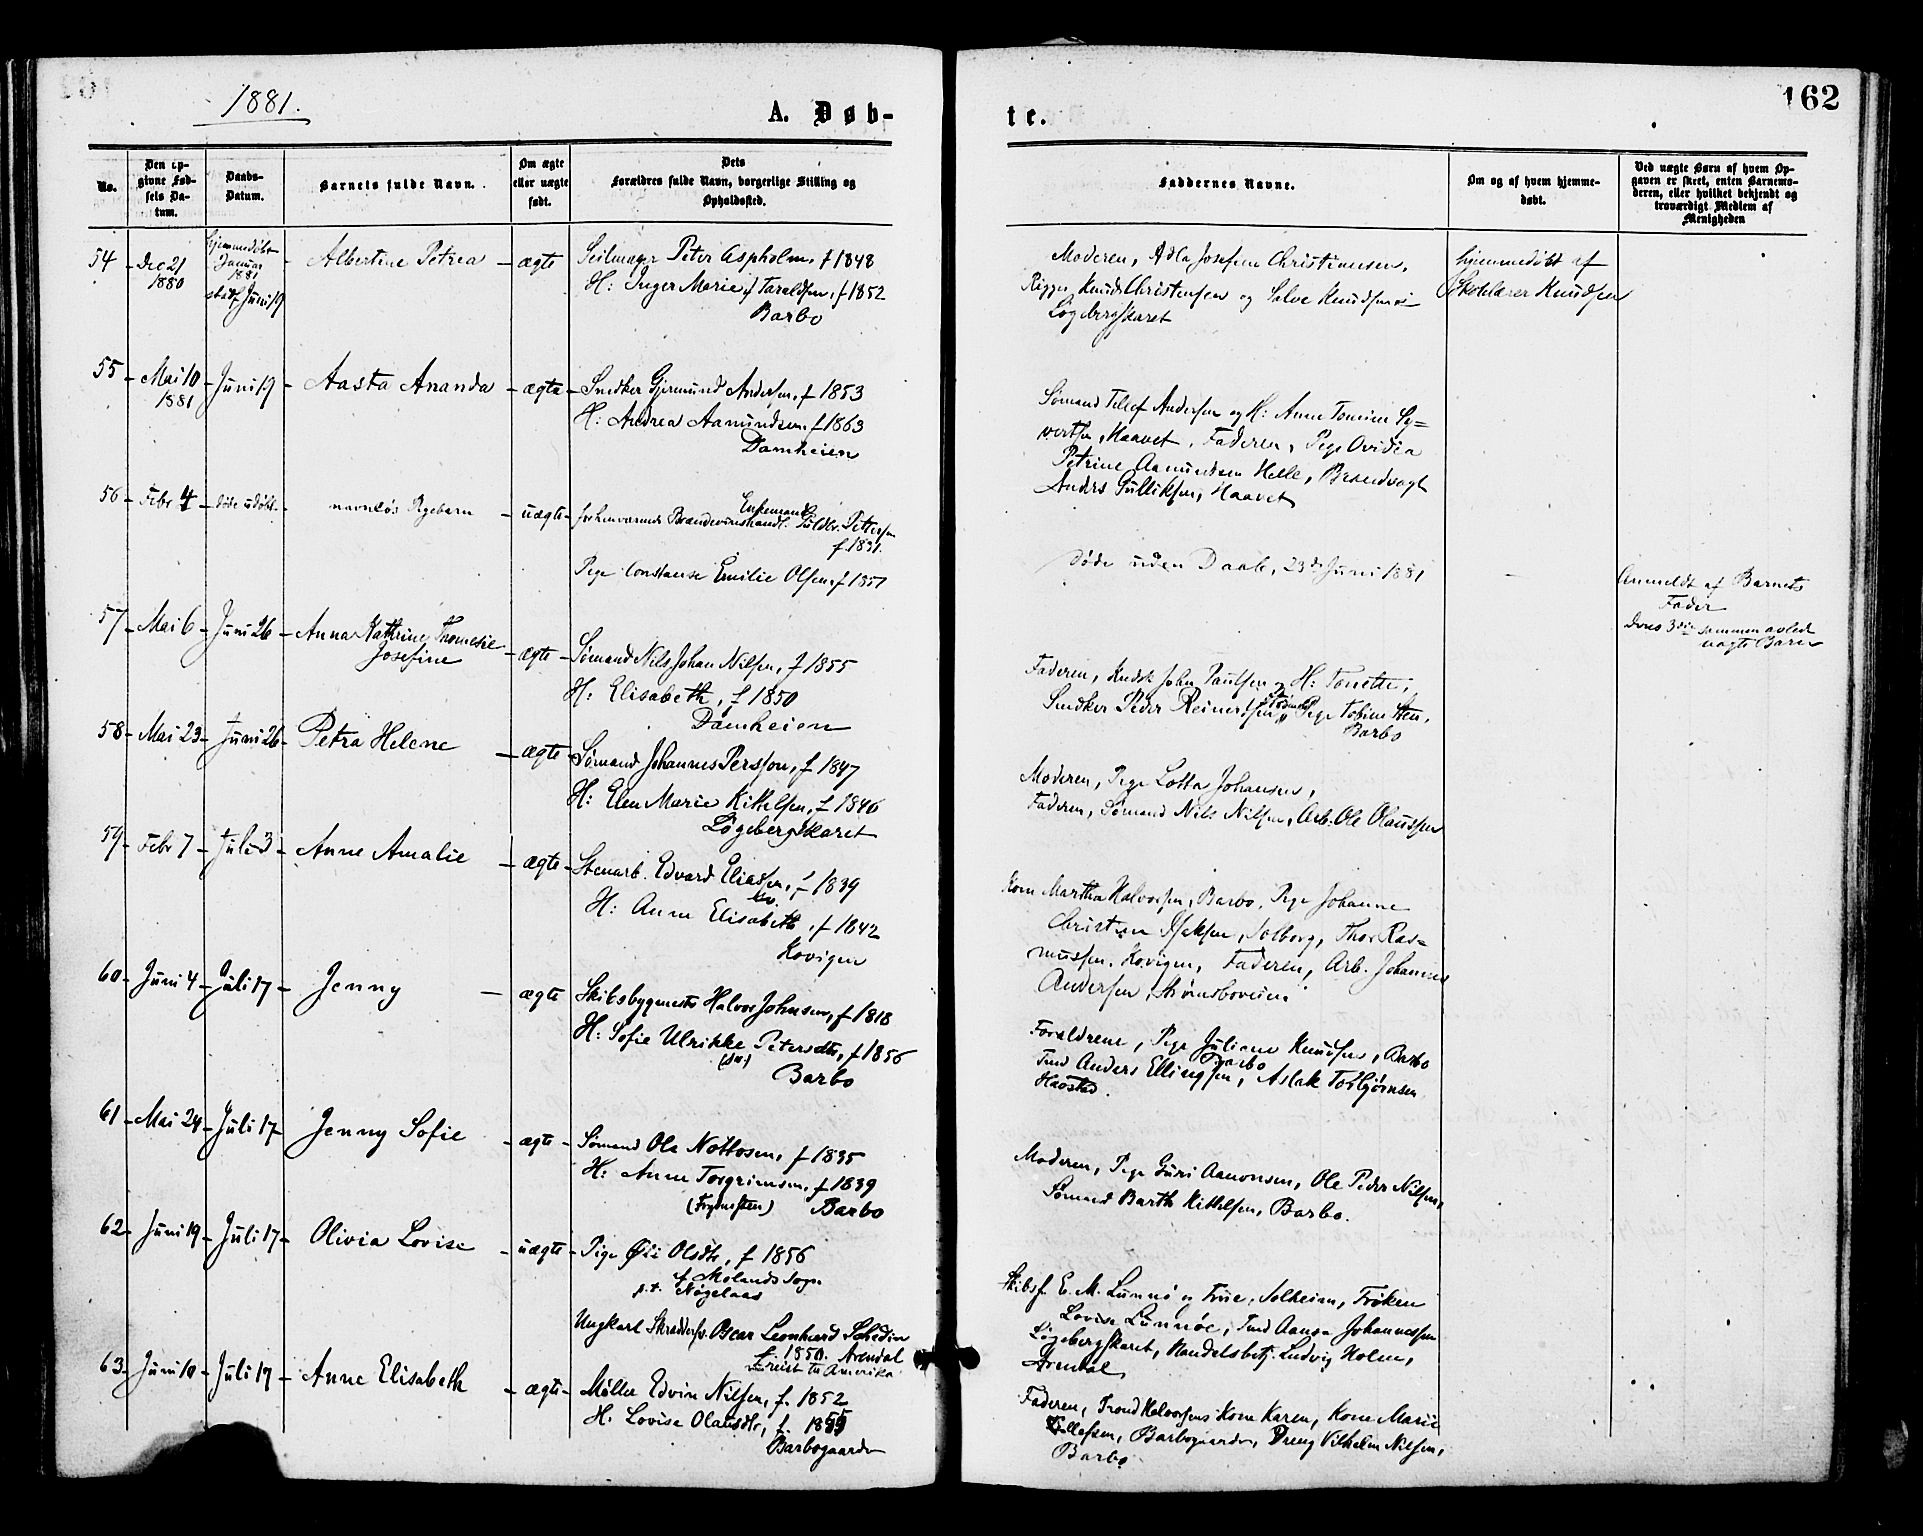 1881.
A. Døb-
te.
162
No.
Den op-
givne Fød-
sels Da-
tum.
Daabs-
Datum.
Barnets fulde Navn.
Om ægte
eller uægte
født.
Dets
Forældres fulde Navn, borgerlige Stilling og
Opholdssted.
Faddernes Navne.
Om og af hvem hjemme-
døbt.
Ved uægte Børn af hvem Op-
gaven er skeet, enten Barnemo-
deren, eller hvilket bekjendt og
troværdigt Medlem af
Menigheden
54 Dec 21
1880
hjemmedøbt
Januar
1881
stadf Juni 19
Albertine Petrea - ægte
Seilmager Peter Aspholm, f 1848
H: Inger Marie Taraldsen, f 1852
Barbo
Moderen, Adla Josefine Christensen,
Rigger Knud Christensen og Salve Knudsen
Løgebergskaret
hjemmedøbt af
Skolelærer Knudsen
55 - Mai 10 - Juni 19 - Aasta Ananda - ægte -
1881
Snedker Gjermund Andersen, f 1853
H: Andrea Aamundsen, f 1863
Damheien
Sømand Tellef Andersen og H: Anne Tomine Sy=
vertsen, Haavet, Faderen, Pige Ovidia
Petrine Aamundsen Helle, Brandvagt
Anders Gulliksen, Haavet
56 - Febr 4 - døde udøbt - navnløs Pigebarn - uægte -
Enkemand
forhenværende Brændevinshandl. Guldbr. Pettersen
f. 1831.
Pige Constanse Emilie Olsen, f 1857
Døde uden Daab, 23de Juni 1881
Anmeldt af Barnets
Fader
Deres 3die sammen avlede
uægte Barn
57 - Mai 6 - Juni 26 - Anna Kathrine Thomesie
Josefine - ægte -
Sømand Nils Johan Nilsen, f 1855
H: Elisabeth, f 1850
Damheien
Faderen, John Paulsen og H: Tonette,
Snedker Peder Reinertsen, Pige Tobine Sten,
Barbo
58 - Mai 23 - Juni 26 - Petra Helene - ægte
Sømand Johannes Persson, f 1847
H: Elen Marie Kittelsen, f 1846
Løgebergskaret
Moderen, Pige Lotta Johansen,
Faderen, Sømand Nils Nilsen, Arb. Ole Olaussen
59 - Febr 7 - Juli 3 - Anne Amalie - ægte -
Stenarb. Edvard Eliassen, f 1839
H: Anne Elisabeth, f 1842
Kovigen
Kone Martha Halvorsen, Barbo, Pige Johanne
Christine Isaksen, Solborg, Thor Ras=
mussen, Kovigen, Faderen, Arb. Johannes
Andersen, Strømsboveien
60 - Juni 4 - Juli 17 - Jenny - ægte
Skibsbygmester Halvor Johnsen, f 1818
H: Sofie Ulrikke Petersdtr, f 1856
Barbo
Forældrene, Pige Juliane Knudsen, Barbo
Tmd Anders Ellingsen, Aslak Torbjørnsen
Barbo
Haastad.
61 - Mai 24 - Juli 17 - Jenny Sofie - ægte -
Sømand Ole Nottosen, f 1835
H: Anne Torgrimsen, f 1839
Barbo
Moderen, Pige Guri Aanonsen, Ole Peder Nilsen,
Sømand Barth Kittelsen, Barbo.
62 - Juni 19 - Juli 17 - Olivia Lovise - uægte -
Pige Olsdtr, f 1856
af Molands Sogn
p.t. Nøgelaas
Ungkarl Skrædder Oscar Leonhard Schedin
f. 1850. Arendal
reist til Amerika
Skibsf. E. M. Lunnø og Frue, Solheim, Frøken
Lovise Lunnøe, Tmd Johannessen
Løgebergskaret, Handelsbetj. Ludvig Holm,
Arendal
63 - Juni 10 - Juli 17 - Anne Elisabeth - ægte -
Møller Edvin Nilsen, f. 1852
H: Lovise Olausdtr, f. 1855
Barbogaarden
Faderen, Trond Halvorsens Kone Karen, Kone Marie
Tellefsen, Barbogaarden, Dreng Vilhelm Nilsen,
Barbo